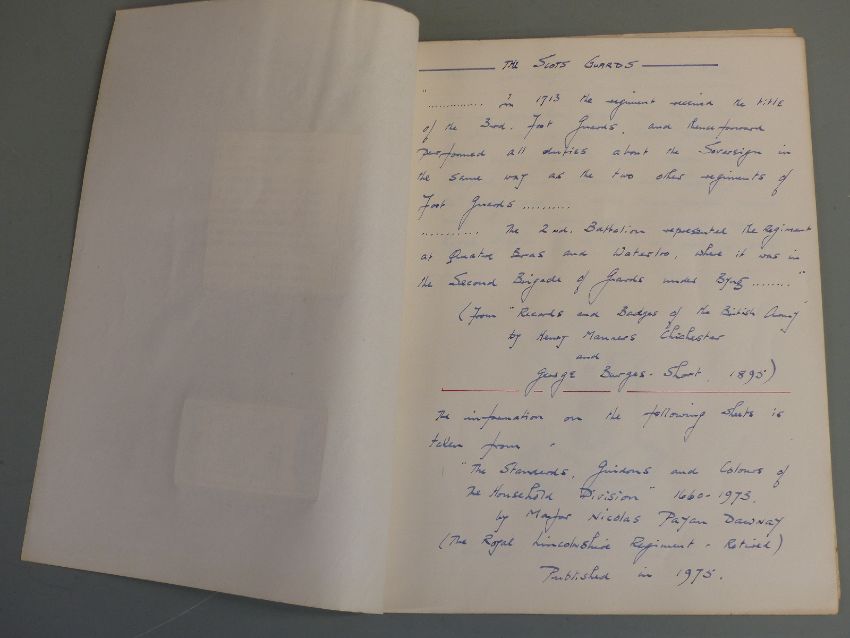 THE SCOTS GUARDS
"............. In 1713 the regiment received the title
of the 3rd. Foot Guards, and thenceforward
performed all duties about the Sovereign in
the same way as the two other regiments of
Foot Guards ..........
........... The 2nd. Battalion represented the Regiment
at Quatre Bras and Waterloo, where it was in
the Second Brigade of Guards under Byng ........"
(From "Records and Badges of the British Army"
by Henry Manners Chichester
and
George Burges-Short, 1895)
The information on the following sheets is
taken from "
"The Standards, Guidons and Colours of
the Household Division" 1660-1973.
by Major Nicolas Payan Dawnay
(The Royal Lincolnshire Regiment - Retired)
Published in 1975.